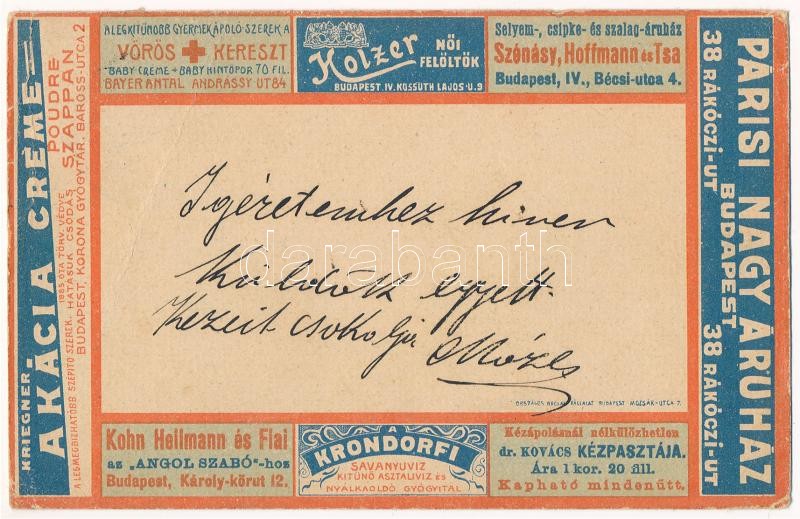 A LEGKITÜNŐBB GYERMEKÁPOLÓ SZEREK A
VÖRÖS KERESZT
BABY CREME + BABY HINTŐPOR 70 FIL.
BAYER ANTAL ANDRÁSSY UT 84
Holzer
NŐI
FELÖLTŐK
BUDAPEST. IV. KOSSUTH LAJOS-U. 9
Selyem-, csipke- és szalag-áruház
Szénásy, Hoffmann és Tsa
Budapest, IV., Bécsi-utca 4.
KRIEGNER
AKÁCIA CRÈME
POUDRE
SZAPPAN
1885 ÓTA TÖRV. VÉDVE
A LEGMEGBIZHATÓBB SZÉPITŐ SZEREK. HATÁSUK CSODÁS
BUDAPEST, KORONA GYÓGYTÁR. BAROSS-UTCA 2
PÁRISI NAGY ÁRUHÁZ
BUDAPEST
38 RÁKÓCZI-UT
38 RÁKÓCZI-UT
Igéretemhez hiven
küldök egyett.
Kezeit csokolja Mózes
darabanth
ORSZÁGOS VÁLLALAT BUDAPEST MOZSÁR-UTCA 7.
Kohn Heilmann és Fiai
az „ANGOL SZABÓ"-hoz
Budapest, Károly-körut 12.
A
KRONDORFI
SAVANYUVIZ
KITÜNŐ ASZTALIVIZ ÉS
NYÁLKAOLDÓ GYÓGYITAL
Kézápolásnál nélkülözhetlen
dr. KOVÁCS KÉZPASZTÁJA.
Ára 1 kor. 20 fill.
Kapható mindenütt.